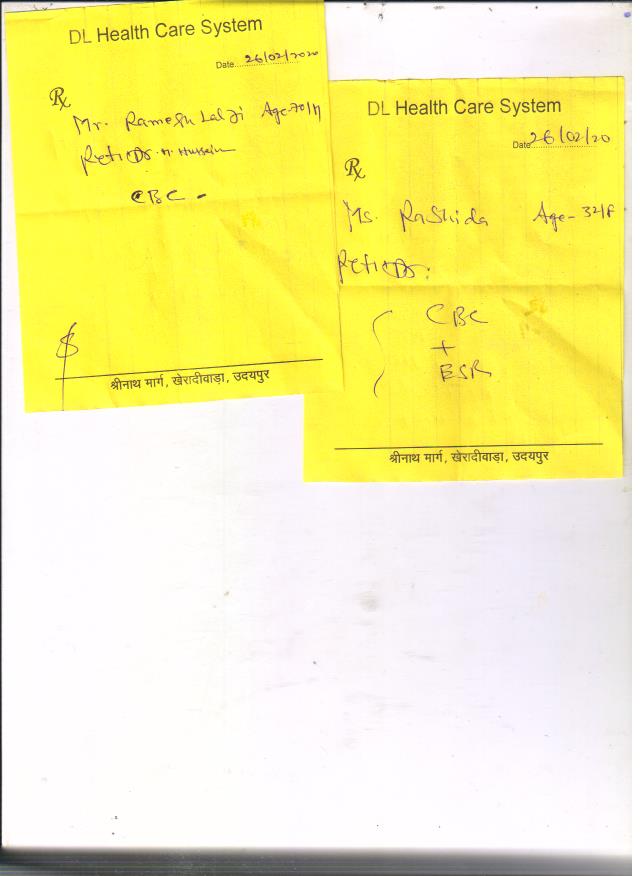 DL Health Care System
Date 26/02/2020
Rx
Mr. Ramesh Lal Ji Age-70/M
Ref: Dr. M. Hussein
CBC -
श्रीनाथ मार्ग, खेरादीवाड़ा, उदयपुर
DL Health Care System
Date 26/02/20
Rx
Ms. Rashida Age-32/F
Ref: Dr.
CBC
+
ESR
श्रीनाथ मार्ग, खेरादीवाड़ा, उदयपुर